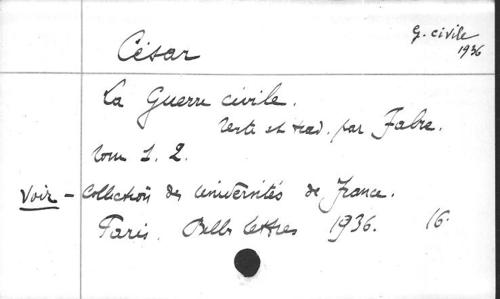 G. civile
1936
César
La Guerre civile.
Texte et trad. par Fabre.
tom 1. 2.
Voir - Collection des Universités de France.
Paris. Belles lettres 1936. 16.